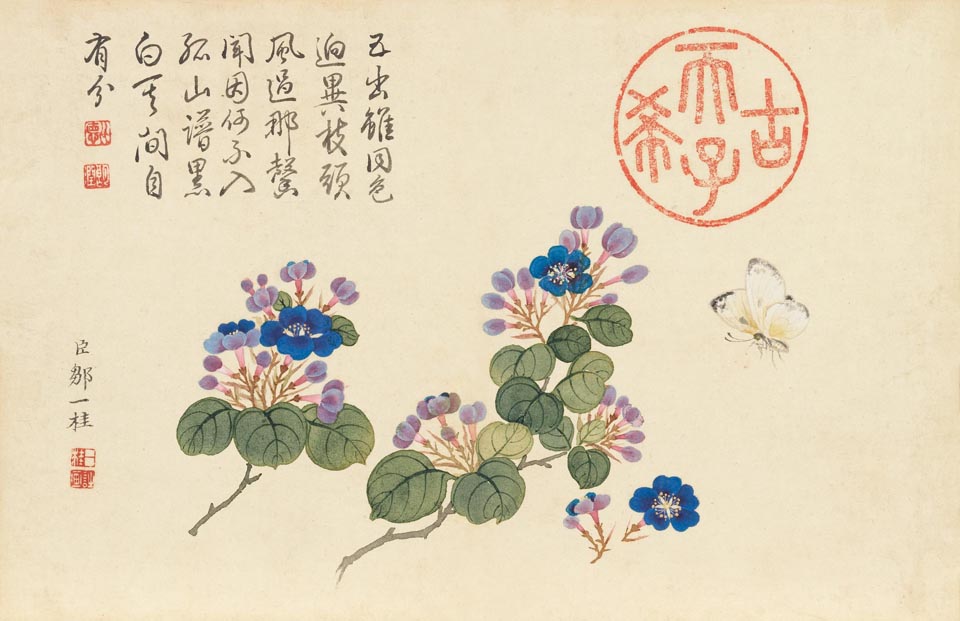 五出雖同色
逈異枝頭
風過那馨
聞因何不入
孤山譜黑
白其間自
有分
古希天子
臣鄒一桂